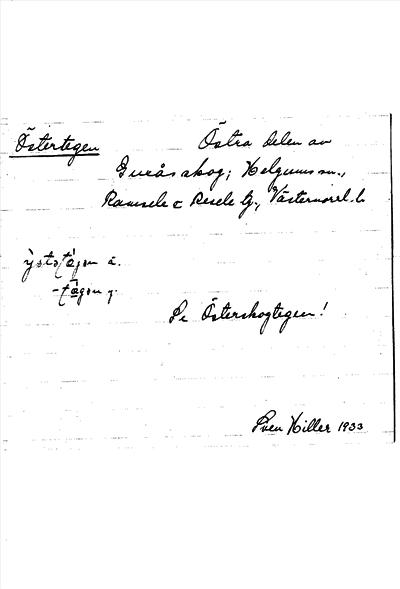 Östertegen
Östra delen av
Guråsskog; Helgums sn.,
Ramsele o Resele tg., Västernorrl. l.
-tägen y.
Se Österskogtegen!
Sven Hiller 1933